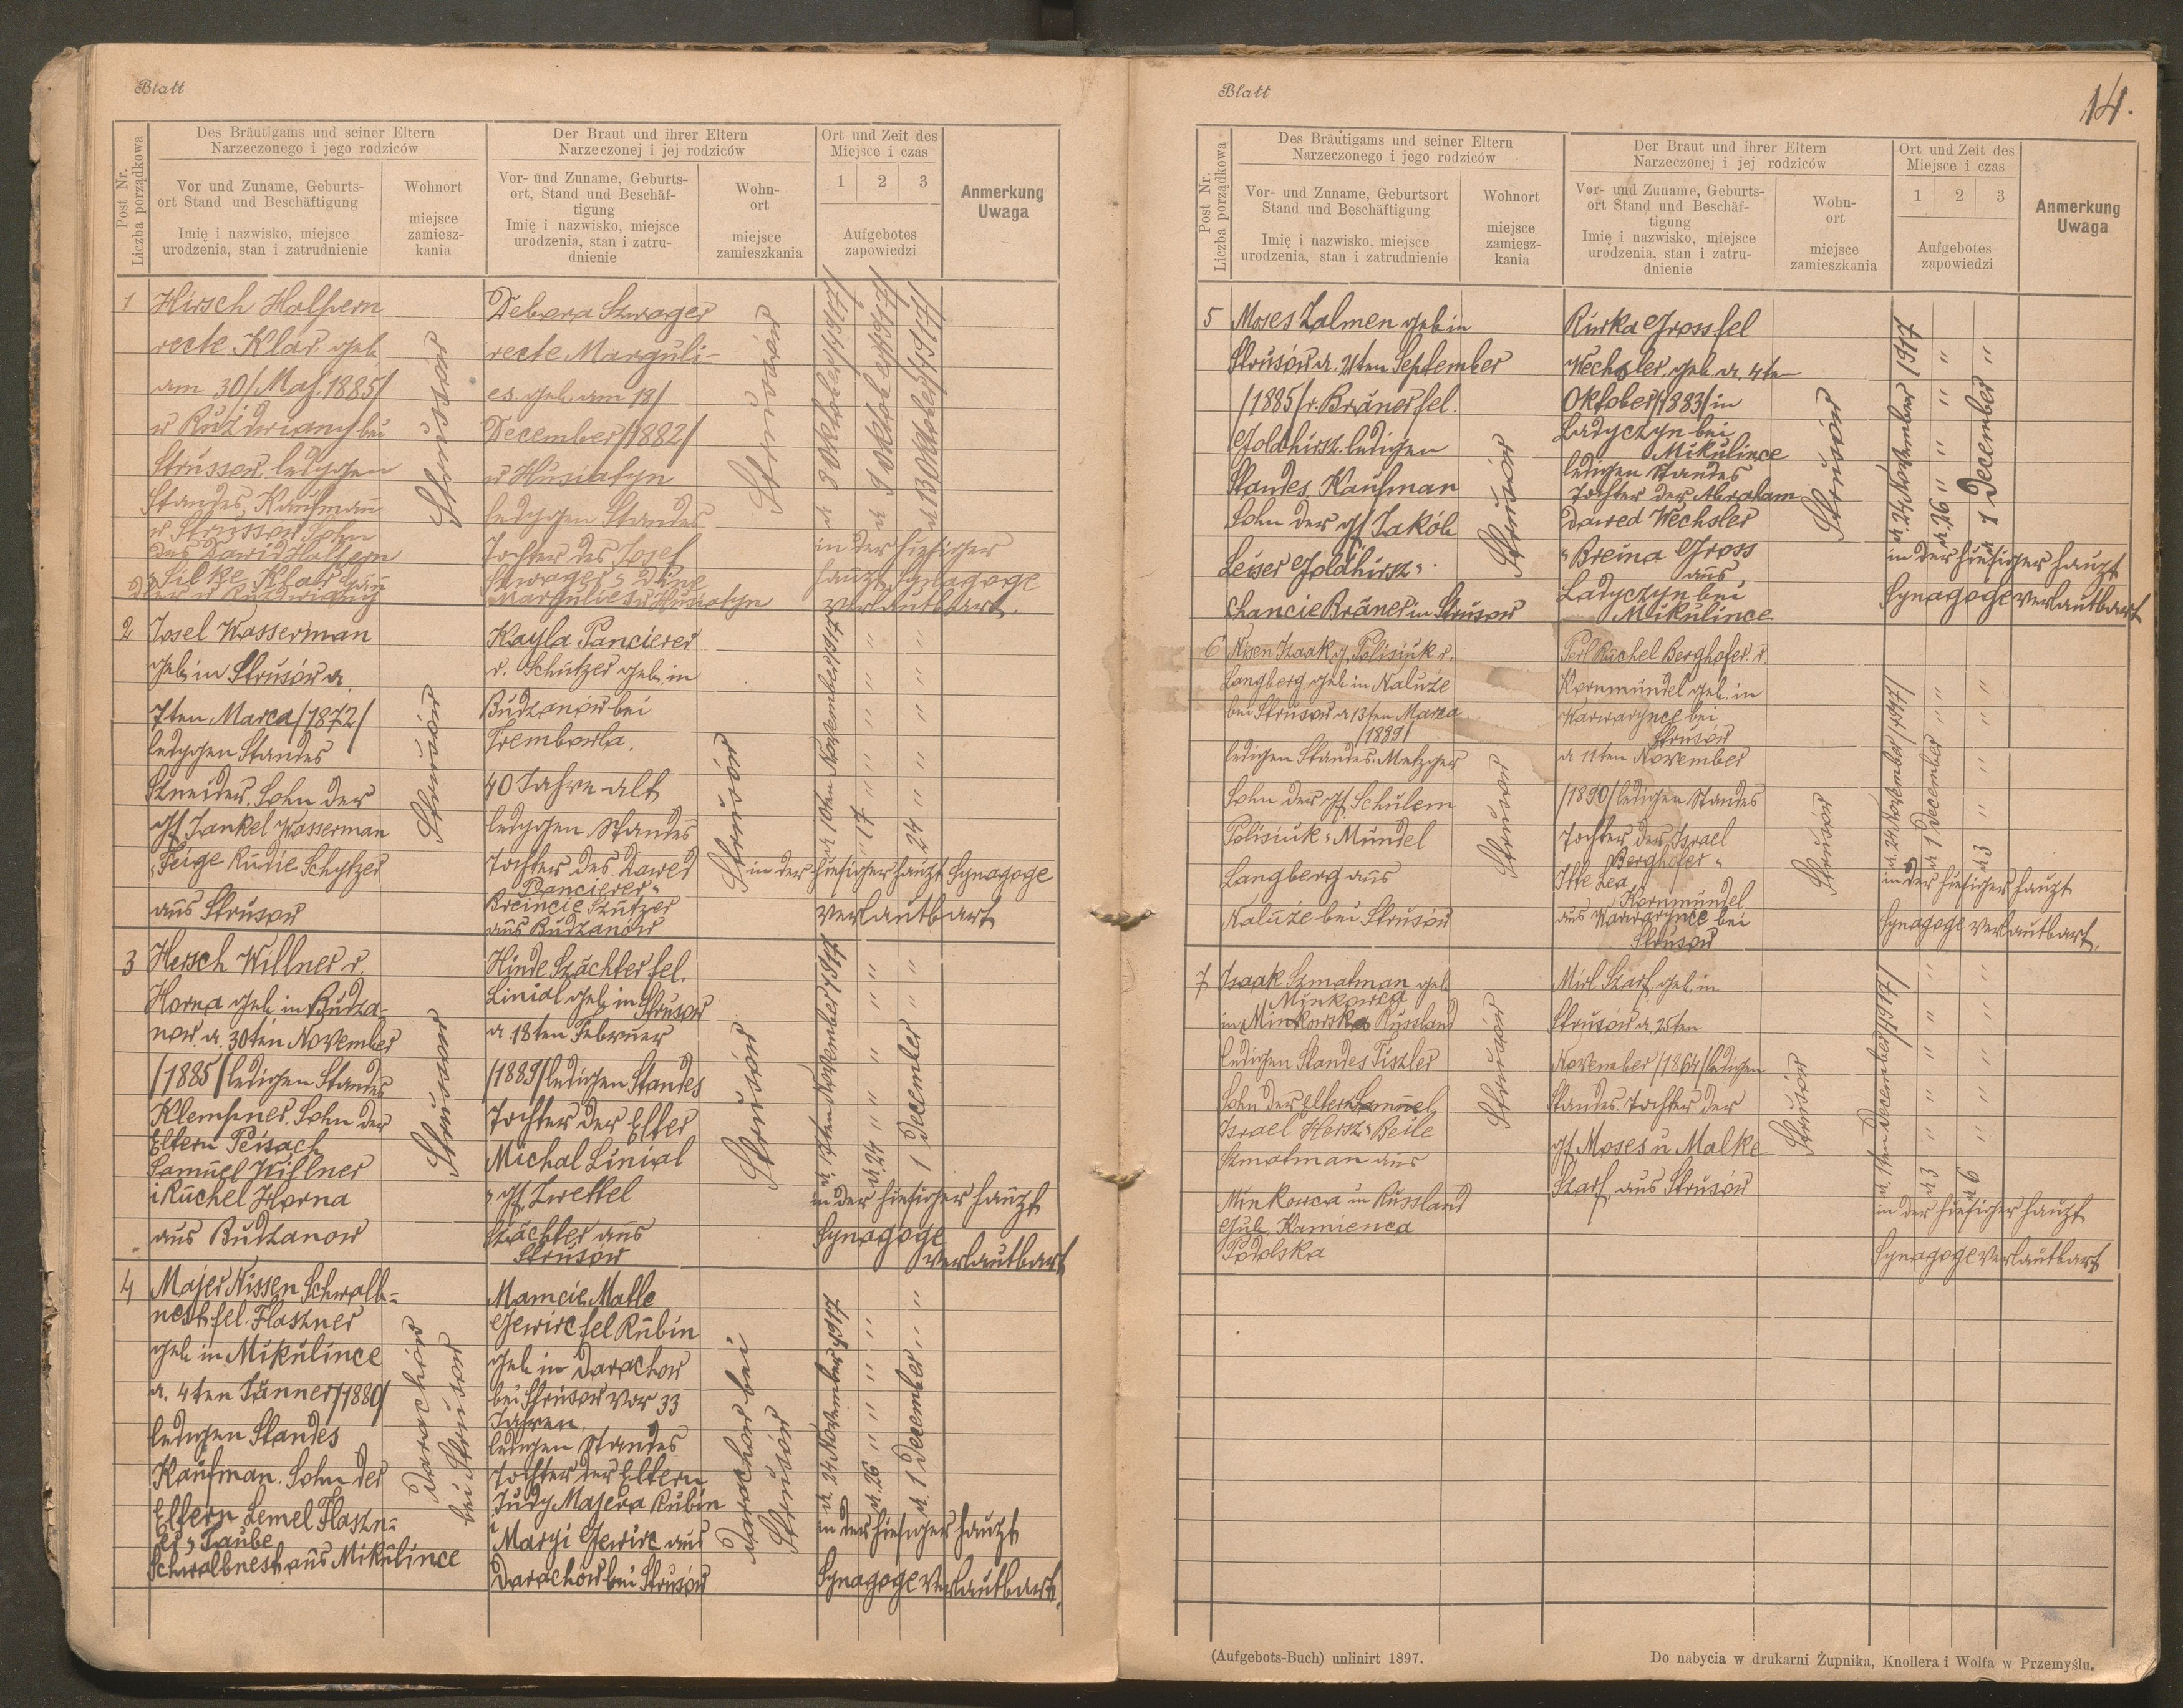 Blatt
Post Nr.
Liczba porządkowa
Des Bräutigams und seiner Eltern
Narzeczonego i jego rodziców
Vor und Zuname, Geburts-
ort Stand und Beschäftigung
Imię i nazwisko, miejsce
urodzenia, stan i zatrudnienie
Wohnort
miejsce
zamiesz-
kania
Der Braut und ihrer Eltern
Narzeczonej i jej rodziców
Vor- und Zuname, Geburts-
ort, Stand und Beschäf-
tigung
Imię i nazwisko, miejsce
urodzenia, stan i zatru-
dnienie
Wohn-
ort
miejsce
zamieszkania
Ort und Zeit des
Miejsce i czas
1 2 3
Aufgebotes
zapowiedzi
Anmerkung
Uwaga
1
Hirsch Halpern
recte Klar. geb
am 30/Maj. 1885/
bei
Strussow. ledigen
Standes, Kaufmann
w Strussow Sohn
des Dawid Halpern
Silke Klar
Strussów
Debora Szwager
recte Marguli-
es. geb. am 18/
December/1882/
w Husiatyn
ledigen Standes
Tochter des Josef
Szwager
Margulies w Husiatyn
Strusów
9 Oktober
13 Oktober/1917/
in der hiesiger
haupt Synagoge
verlautbart.
2
Josel Wasserman
geb in Strusów a.
7ten Marca/1872/
ledigen Standes
Szneider. Sohn der
Jankel Wasserman
Feige Rudie Schytzer
aus Strusow
Strusów
Kayla Pancierer
r. Schutzer geb. in
Budzanów bei
Trembowla.
40 Jahre alt
ledigen Standes
Tochter des Dawed
Pancierer
Breincie Szutzer
aus Budzanów
Strusów
a 10ten November 1917
" 17 " "
" 24 " "
in der hiesiger haupt Synagoge
verlautbart
3
Hersch Willner r.
Horna geb in Budza-
now. a. 30ten November
/1885/ledigen Standes
Klempner. Sohn der
Eltern Peisach
Samuel Willner
i Ruchel Horna
aus Budzanow
Strusow
Hinde Szächter fel.
Linial geb in Strusow
a 18ten Februer
/1889/ledigen Standes
Tochter der Elter
Michal Linial
Zwettel
Szächter aus
Strusow
Strusów
November 1917
a. 24 " "
1 December "
in der hiesiger haupt
Synagoge
verlautbart
4
Majer Nissen Schwalb-
nest. fel. Flaszner
geb in Mikulince
a. 4ten Jänner/1880/
ledigen Standes
Kaufman. Sohn der
Eltern Lemel Flaszn-
er " Taube
Schwalbnest aus Mikulince
Darachów
bei Strusow
Mamcie Matle
Gewirc fel Rubin
geb in Darachow
bei Strusow vor 33
Jahren.
ledigen Standes
Tochter der Eltern
Judy Majera Rubin
i
Margi Gewirc aus
Darachów bei Strusów
Darachów bei
Strusów
a. 24 November 1917
a. 26 " "
a. 1 December " "
in der hiesiger haupt
Synagoge verlautbart.
Blatt
14.
Post Nr.
Liczba porządkowa
Des Bräutigams und seiner Eltern
Narzeczonego i jego rodziców
Vor- und Zuname, Geburtsort
Stand und Beschäftigung
Imię i nazwisko, miejsce
urodzenia, stan i zatrudnienie
Wohnort
miejsce
zamiesz-
kania
Der Braut und ihrer Eltern
Narzeczonej i jej rodziców
Vor- und Zuname, Geburts-
ort Stand und Beschäf-
tigung
Imię i nazwisko, miejsce
urodzenia, stan i zatru-
dnienie
Wohn-
ort
miejsce
zamieszkania
Ort und Zeit des
Miejsce i czas
1 2 3
Aufgebotes
zapowiedzi
Anmerkung
Uwaga
5
Moses Zalmen geb in
Strusów a. 21ten September
/1885/ r. Bräner fel.
Goldhirsz. ledigen
Standes. Kaufman
Sohn der Jakób
Leiser Goldhirsz "
Chancie Bräner in Strusow
Strusów
Rivka Gross fel
Wechsler. geb. a. 4ten
Oktober/1883/in
Ladyczyn bei
Mikulince
ledigen Standes
Tochter der Abraham
Dawed Wechsler
" Breina Gross
aus
Ladyczyn bei
Mikulince
Strusów
a. 24 November 1917
a. 26 " " "
a 1 December "
in der hiesiger haupt
Synagoge verlautbart
6
Nisen Izaak Polisiuk r.
Langberg. geb in Naluże
bei Strusow a 13ten Marca
/1889/
ledigen Standes. Metzger
Sohn der Schulem
Polisiuk " Mundel
Langberg aus
Naluże bei Strusów
Strusow
Perl Ruchel Berghofer. r.
Kornmundel geb. in
Warwarynce bei
Strusów
a 11ten November
/1890/ledigen Standes
Tochter des Israel
Berghofer "
Itte Lea
Kornmundel
aus Warwarynce bei
Strusow
Strusów
a. 24 November/1917/
a 1 December " "
a 3 " " "
in der hiesiger haupt
Synagoge verlautbart.
7
Isaak Szmatman geb
Minkowca
in Minkowska Russland
ledigen Standes Tiszler
Sohn der Eltern Samuel
Israel Hersz " Beile
Szmatman aus
Minkowca in Russland
Gub. Kamienca
Podolska
Strusów
Mirl Szarf geb in
Strusów a. 25ten
November/1864/ledigen
Standes. Tochter der
Moses u Malke
Szarf aus Strusów
Strusów
a. 1ten December/1917/
a 3 " " "
a 6 " " "
in der hiesiger haupt
Synagoge verlautbart
(Aufgebots-Buch) unlinirt 1897.
Do nabycia w drukarni Żupnika, Knollera i Wolfa w Przemyślu.